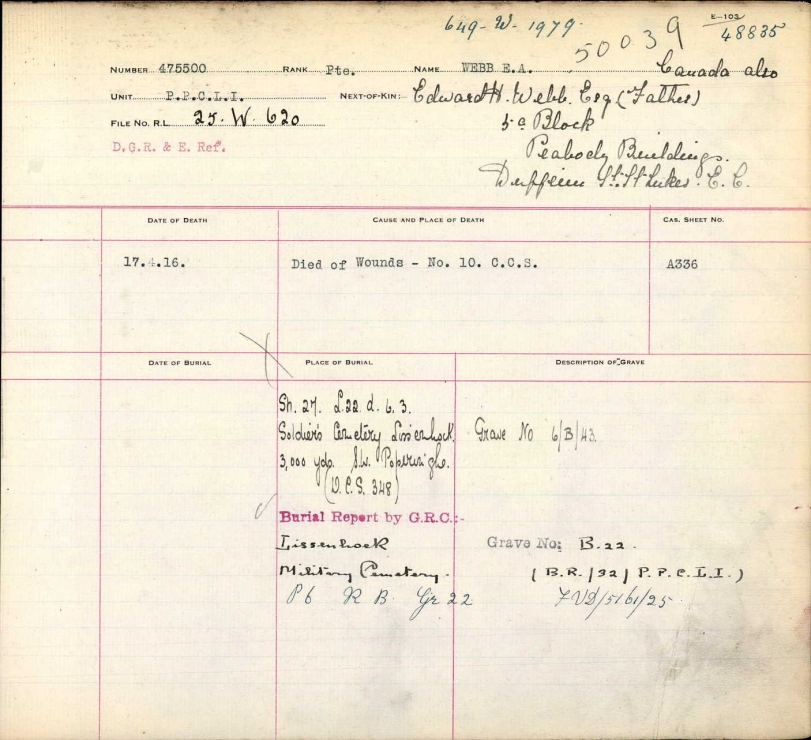 649-W-1979.
E-103
50039
48835
NUMBER 475500 RANK Pte. NAME WEBB E.A. Canada also
UNIT P.P.C.L.I. NEXT-OF-KIN:- Edward H. Webb. Esq (Father)
FILE NO. R.L. 25. W. 620
5a Block
D.G.R. & E. Ref.
Peabody Buildings.
Dufferin St. St Lukes. E. C.
DATE OF DEATH CAUSE AND PLACE OF DEATH CAS. SHEET NO.
17.4.16. Died of Wounds - No. 10. C.C.S. A336
DATE OF BURIAL PLACE OF BURIAL DESCRIPTION OF GRAVE
Sh. 27. L.22. d. 6. 3.
Soldiers Cemetery Lissenhock. Grave No 6/B/43.
3,000 yds. S.W. Poperinghe.
(D.C.S. 348)
Burial Report by G.R.C.:-
Lissenhock Grave No: B.22.
Military Cemetery. (B.R./32/P.P.C.L.I.)
P6 R B. Gr 22 7VD/5161/25